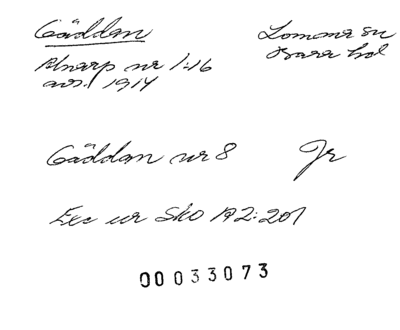 Gäddan
Lomma sn
Bara hd
Alnarp nr 1:16
avs. 1914
Gäddan nr 8 Jr
Exc ur Sko A2:201
00033073